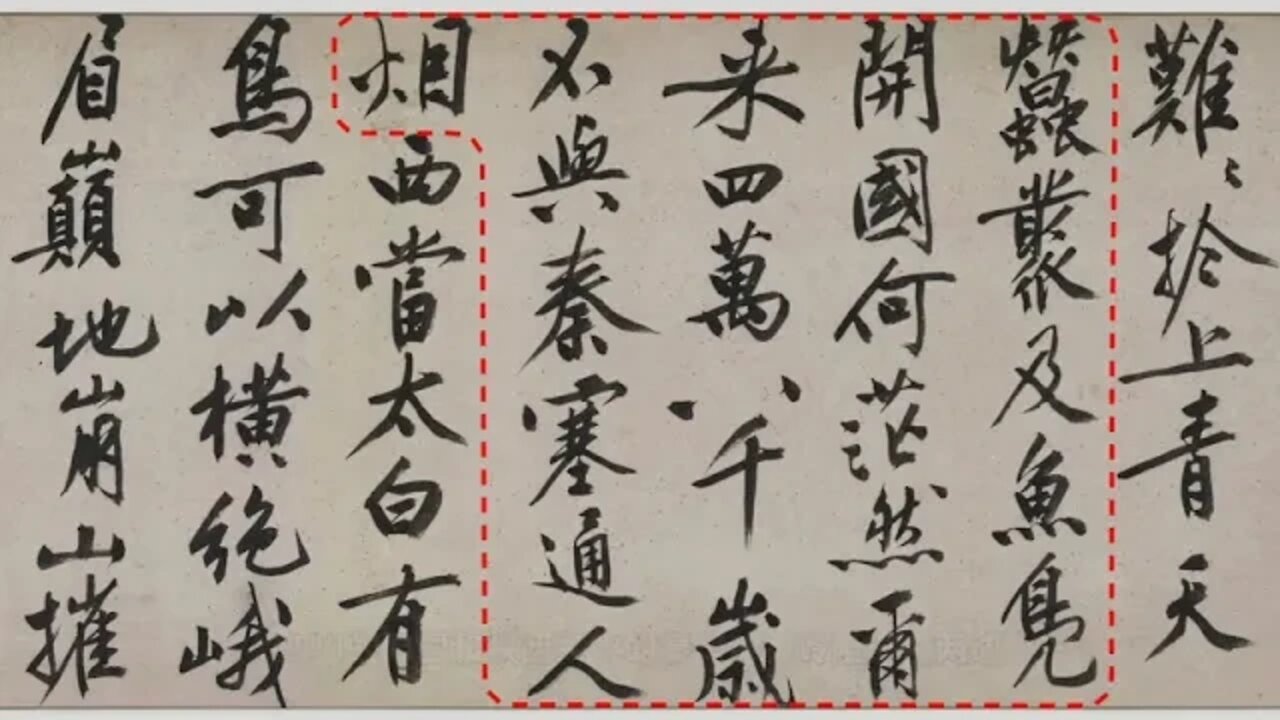 難〻於上青天
蠶叢及魚鳧
開國何茫然爾
来四萬八千歲
不與秦塞通人
烟西當太白有
鳥可以橫絕峨
眉巔地崩山摧